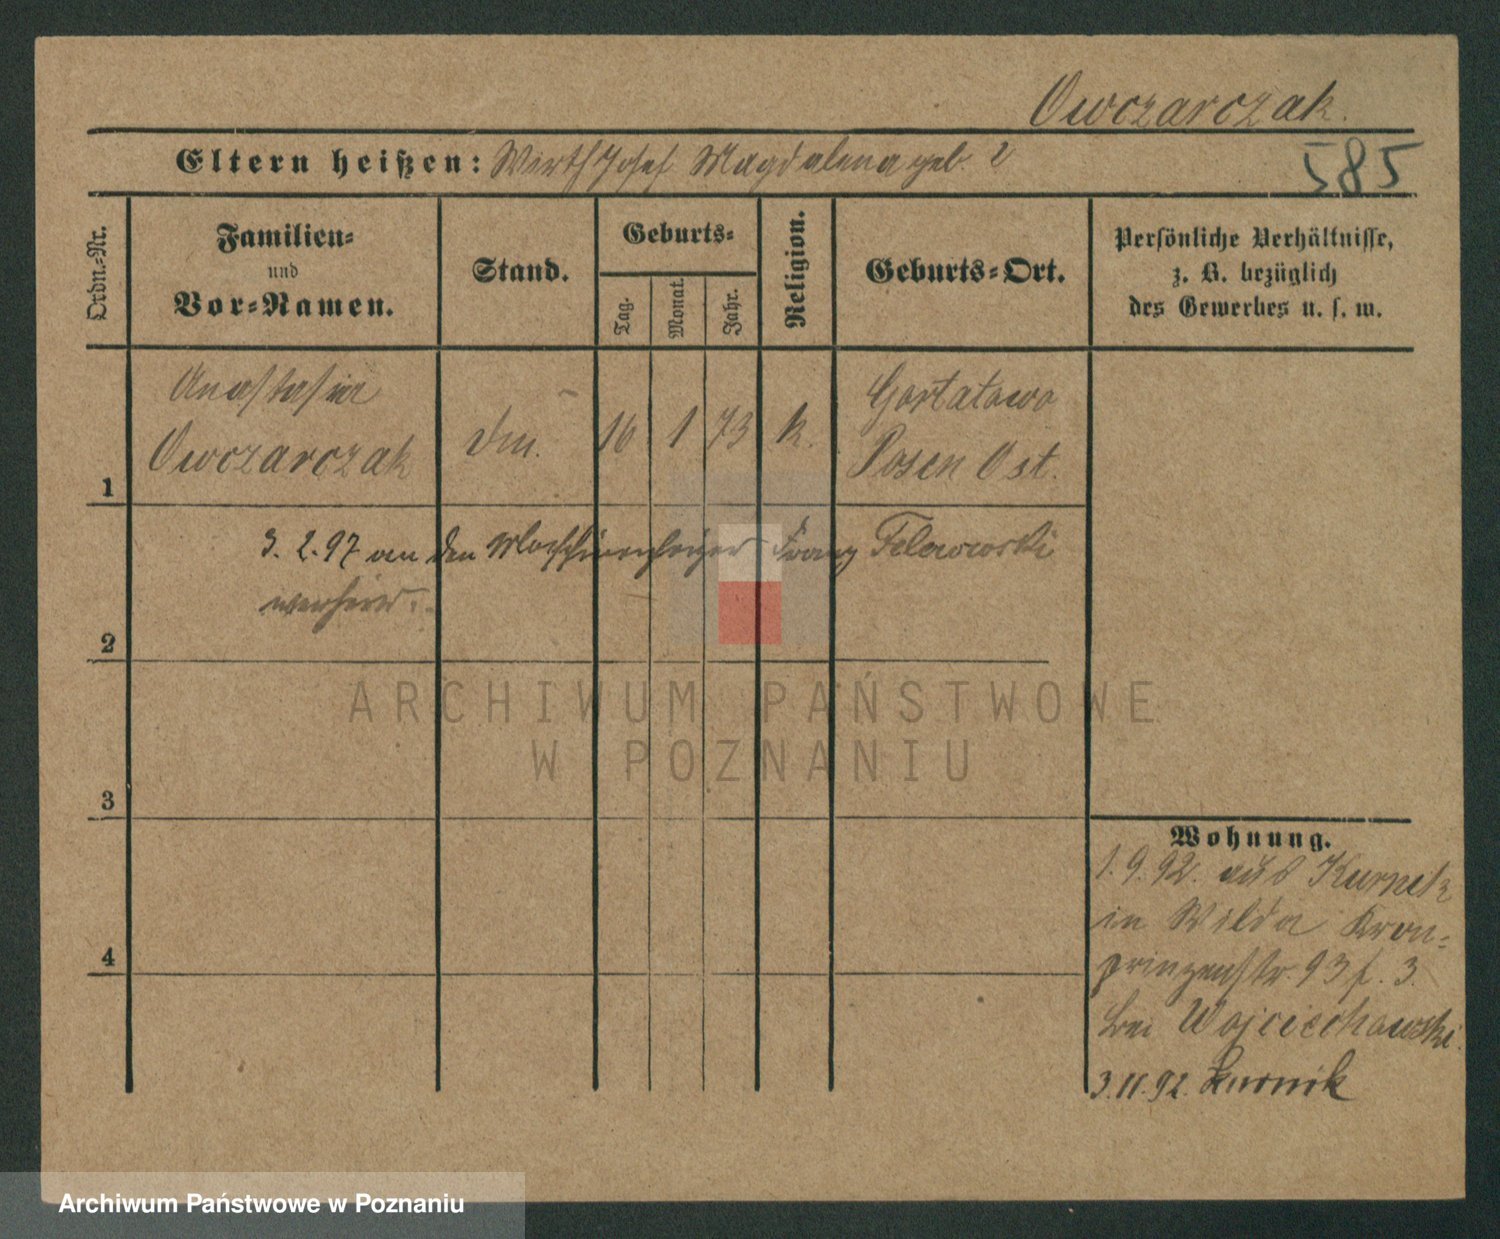 Owczarczak.
585
Eltern heißen: Wirth Josef Magdalena geb. ?
Ordn.-Nr.
Familien-
und
Vor-Namen.
Stand.
Geburts-
Tag.
Monat.
Jahr.
Religion.
Geburts-Ort.
Persönliche Verhältnisse,
z. B. bezüglich
des Gewerbes u. s. w.
Anastasia
Owczarczak
16 1 73 k.
Gortatowo
Posen Ost.
1
3. 2. 97 an den Maschinenheizer Franz
verheir.
2
3
4
Wohnung.
1. 9. 92. aus Kurnik
in Wilda Kron-
prinzenstr. 93 f. 3.
bei Wojciechowski.
3. 11. 92. Kurnik
ARCHIWUM PAŃSTWOWE
W POZNANIU
Archiwum Państwowe w Poznaniu